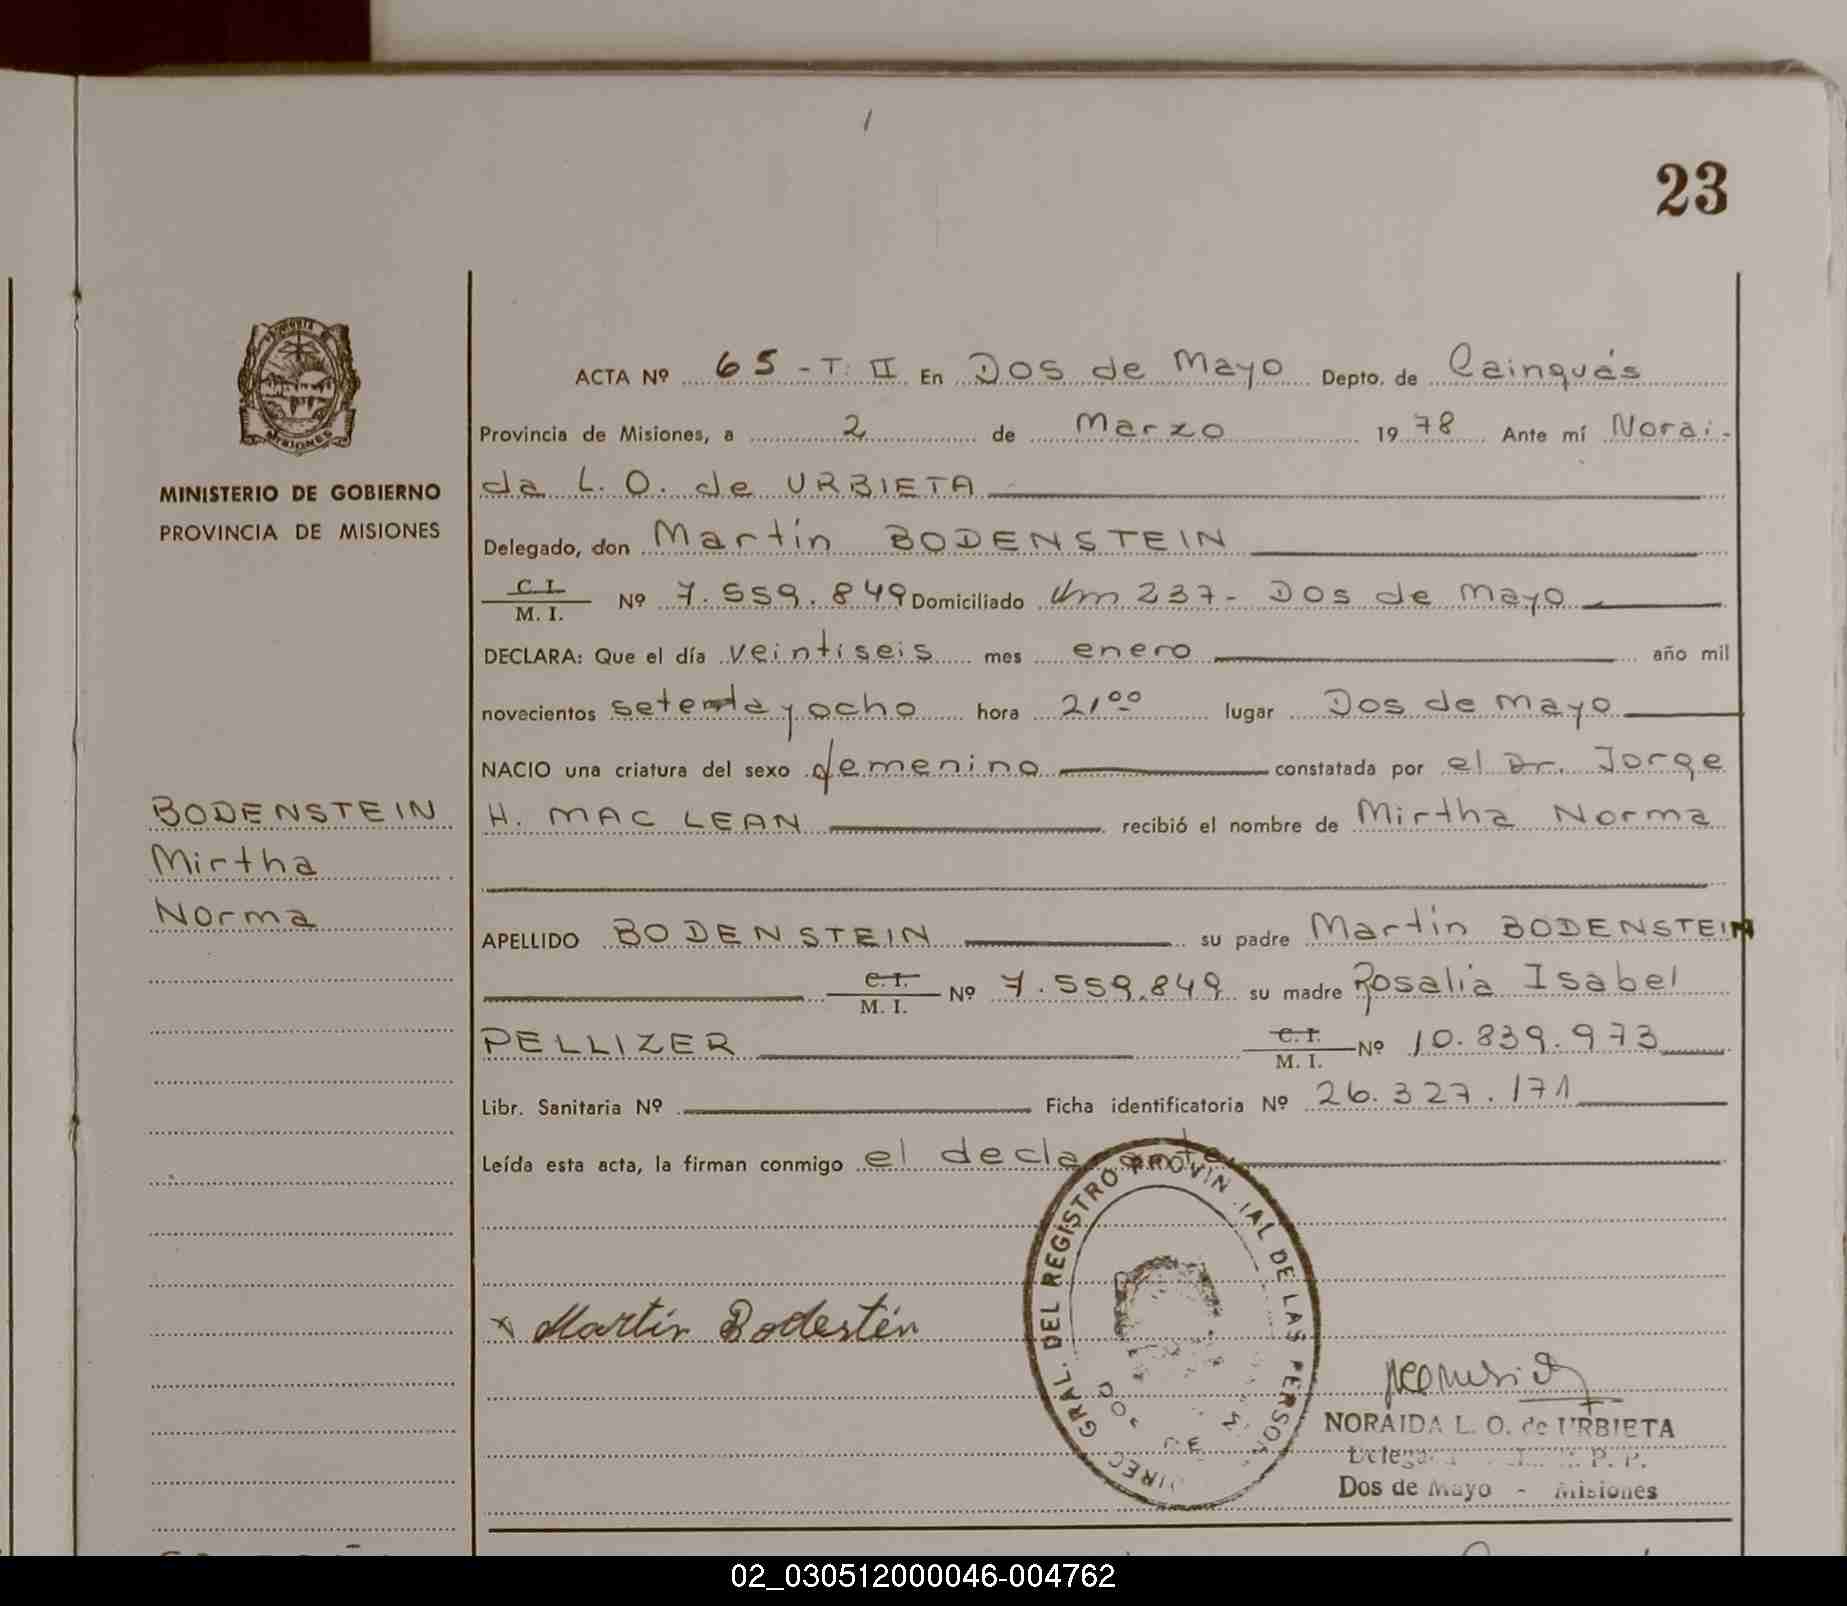 23
ACTA Nº 65 - T. II En Dos de Mayo Depto. de Cainguás
Provincia de Misiones, a 2 de Marzo 19 78 Ante mí Norai-
da L. O. de URBIETA
MINISTERIO DE GOBIERNO
PROVINCIA DE MISIONES
Delegado, don Martín BODENSTEIN
C. I.
M. I. Nº 7.559.849 Domiciliado Km 237 - Dos de Mayo
DECLARA: Que el día veintiseis mes enero año mil
novecientos setenta y ocho hora 21⁰⁰ lugar Dos de Mayo
NACIO una criatura del sexo femenino constatada por el Dr. Jorge
H. MAC LEAN recibió el nombre de Mirtha Norma
BODENSTEIN
Mirtha
Norma
APELLIDO BODENSTEIN su padre Martín BODENSTEIN
C. I.
M. I. Nº 7.559.849 su madre Rosalia Isabel
PELLIZER C. I.
M. I. Nº 10.839.973
Libr. Sanitaria Nº Ficha identificatoria Nº 26.327.171
Leída esta acta, la firman conmigo el declarante
DIREC GRAL. DEL REGISTRO PROVIN IAL DE LAS PERSON
x Martín Bodestén
NORAIDA L. O. de URBIETA
P. P.
Dos de Mayo - Misiones
02_030512000046-004762